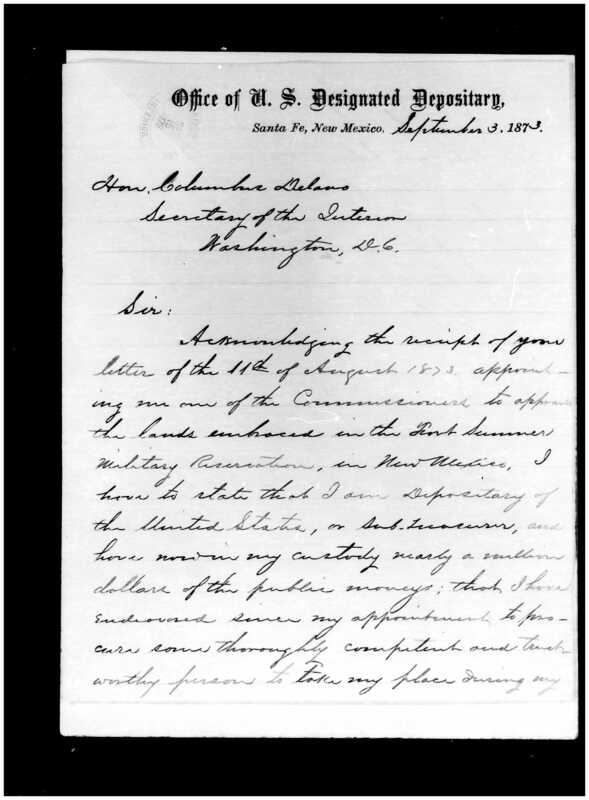 Office of U. S. Designated Depositary,
Santa Fe, New Mexico. September 3. 1873.
Hon. Columbus Delano
Secretary of the Interior
Washington, D.C.
Sir:
Acknowledging the receipt of your
letter of the 11th of August 1873. appoint-
ing me one of the Commissioners to appraise
the lands embraced in the Fort Sumner
Military Reservation, in New Mexico, I
have to state that I am Depositary of
the United States, or Sub-treasurer, and
have now in my custody nearly a million
dollars of the public moneys; that I have
endeavored since my appointment to pro-
cure some thoroughly competent and trust-
worthy person to take my place during my